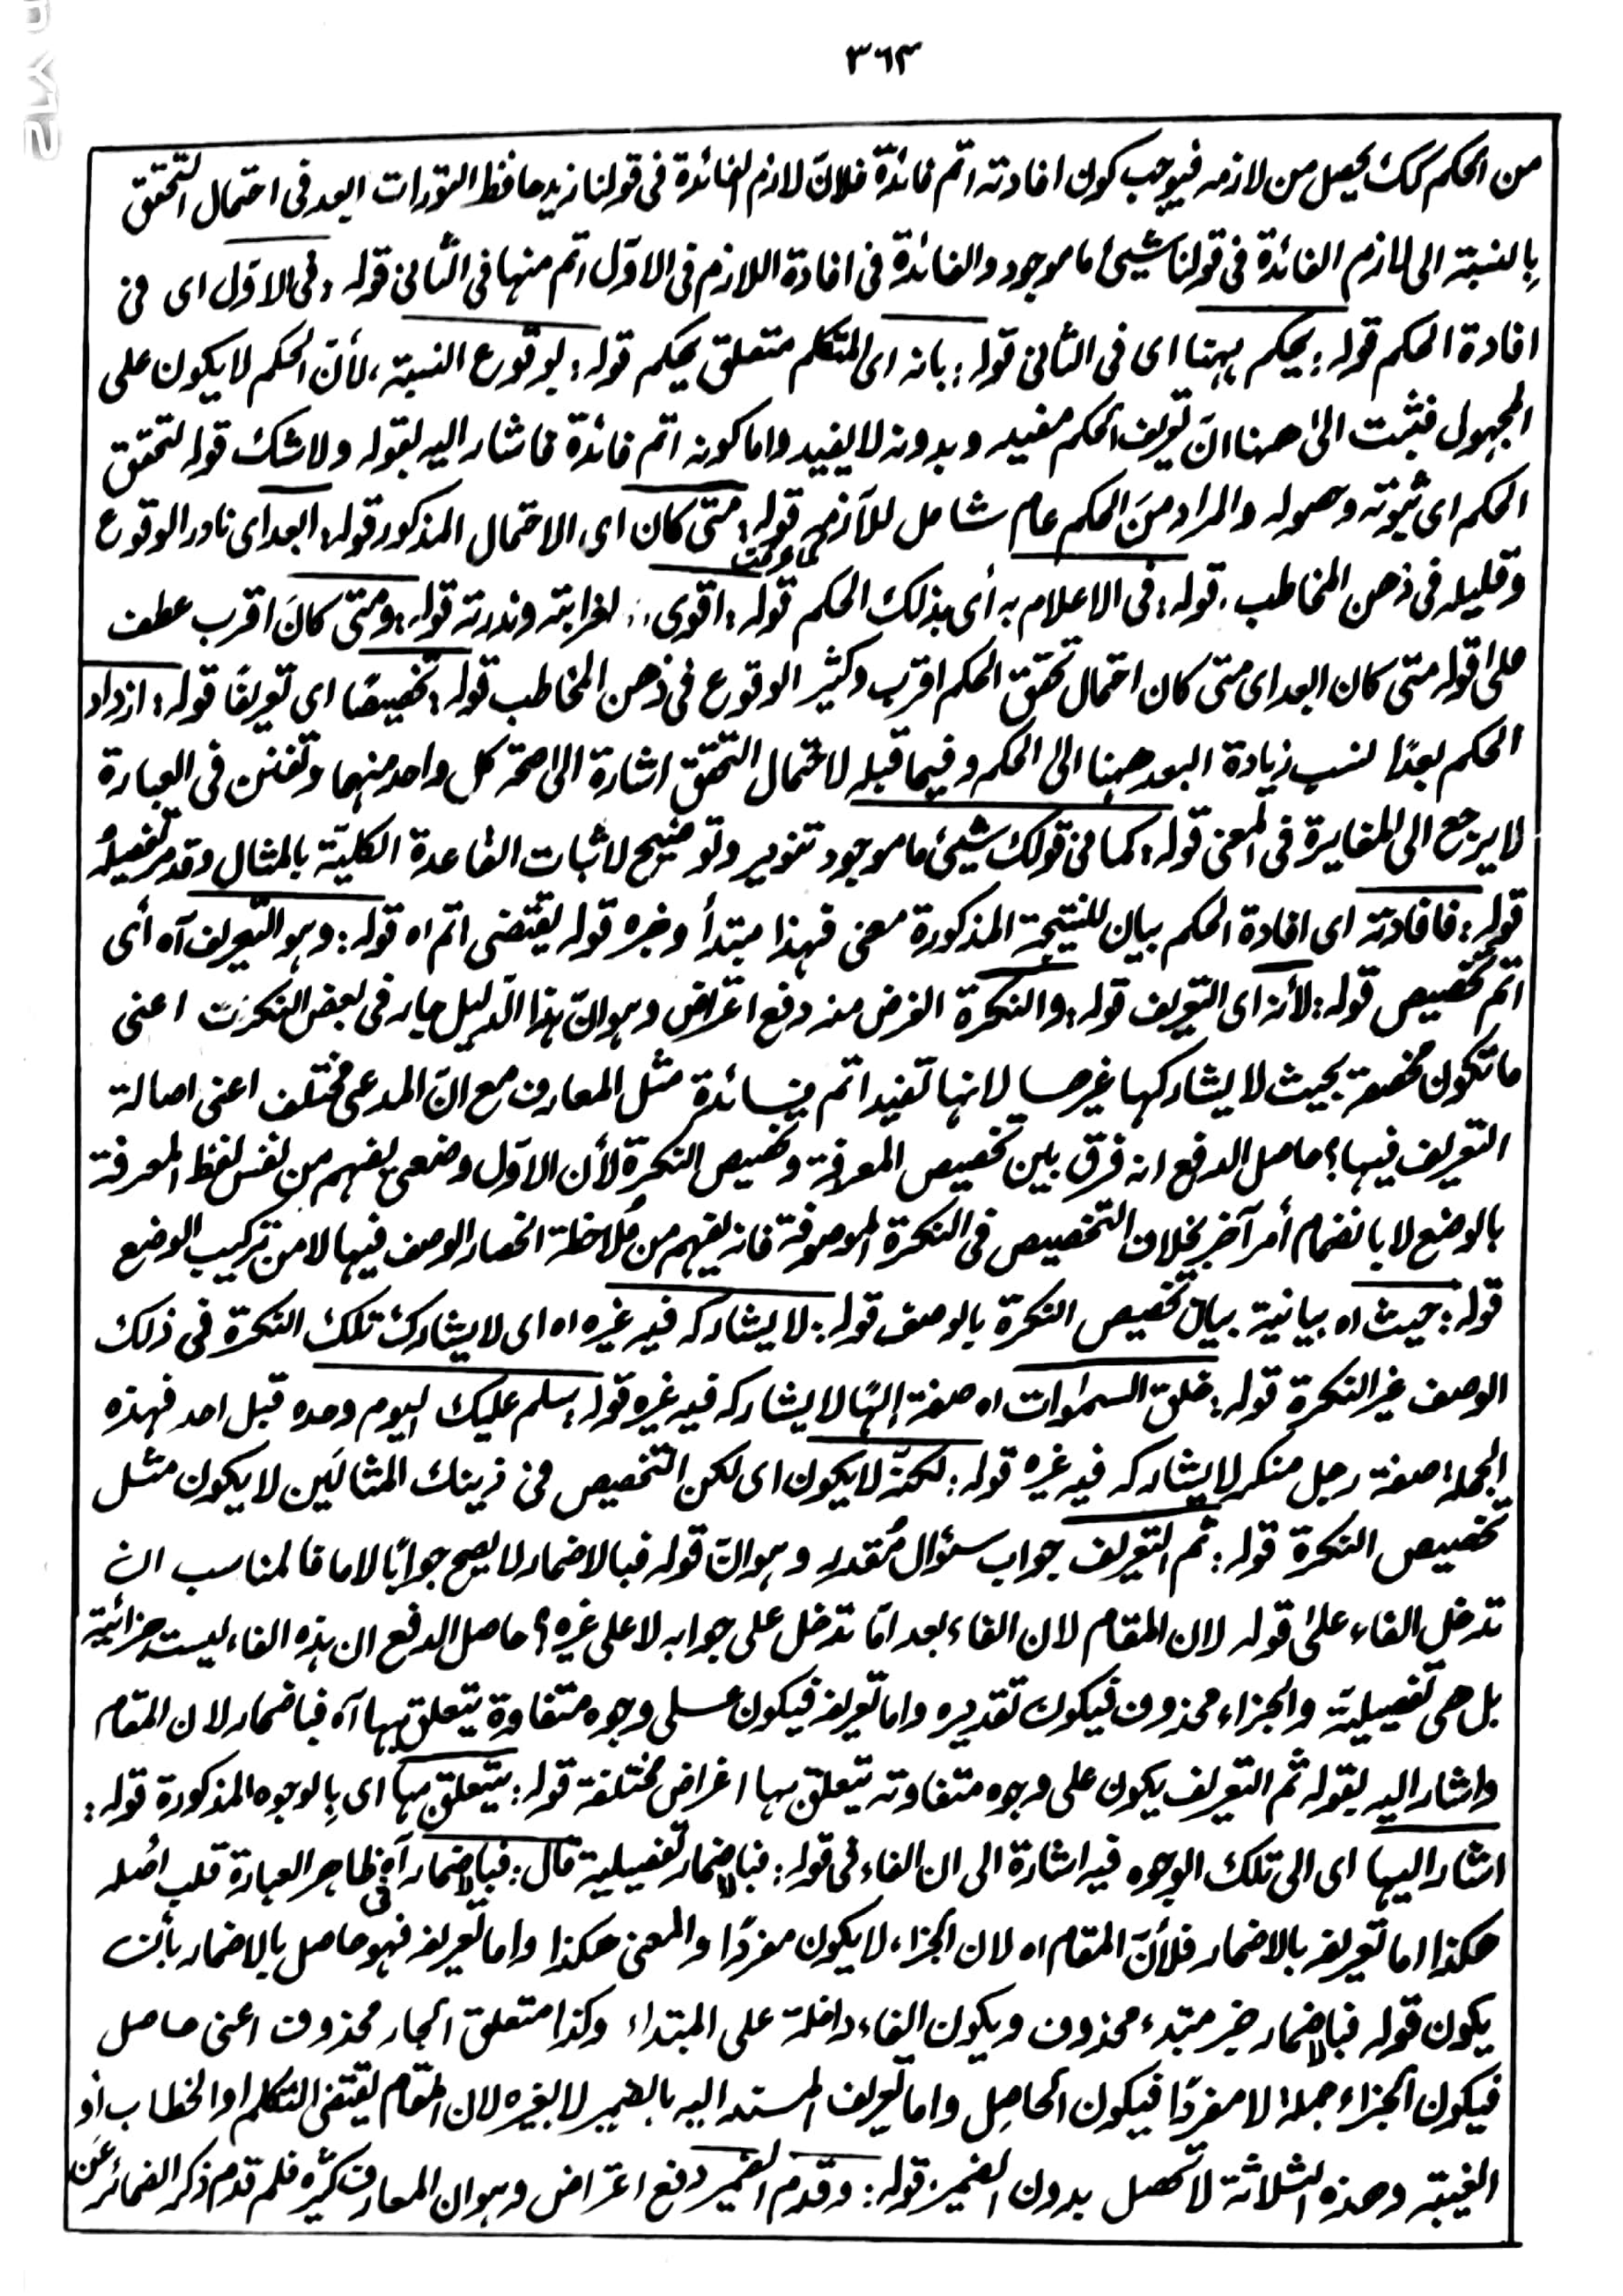 ٣٦٣
من الحكم كك يحصل من لازمه فيوجب كون افادته اتم فائدة فلانّ لازم الفائدة فى قولنا زيد حافظ التورات ابعد فى احتمال التحقق
بالنسبة الى لازم الفائدة فى قولنا شيئ ما موجود والفائدة فى افادة اللازم فى الاوّل اتم منها فى الثانى قوله : فى الاوّل اى فى
افادة الحكم قوله : يحكم ههنا اى فى الثانى قوله : بانه اى المتكلم متعلق يحكم قوله : بوقوع النسبة ، لأنّ الحكم لا يكون على
المجهول فثبت الىٰ ههنا انّ تعريف الحكم مفيد و بدونه لا يفيد واما كونه اتم فائدة فاشار اليه بقوله ولا شك قوله لتحقق
الحكم اى ثبوته وحصوله والمراد منَ الحكم عام شامل للآزمه كما عرفت قوله : متى كان اى الاحتمال المذكور قوله : ابعد اى نادر الوقوع
وقليله فى ذهن المخاطب . قوله : فى الاعلام به أى بذلك الحكم قوله : اقوى ، لغرابته وندرته قوله : ومتى كانَ اقرب عطف
علىٰ قوله متى كان ابعد اى متى كان احتمال تحقق الحكم اقرب وكثير الوقوع فى ذهن المخاطب قوله : تخصيصًا اى تعريفًا قوله : ازداد
الحكم بعدًا نسب زيادة البعد ههنا الى الحكم وفيما قبله لاحتمال التحقق اشارة الى صحة كل واحد منهما وتفنن فى العبارة
لا يرجع الى المغايرة فى المعنى قوله : كما فى قولك شيئ ما موجود تنوير وتوضيح لاثبات القاعدة الكليّة بالمثال وقد مر تفصيلهُ
قوله : فافادته اى افادة الحكم بيان للنتيجة المذكورة معنى فهذا مبتدأ وخبره قوله يقتضى اتم اه قوله : وهو التعريف آه أى
اتم تخصيص قوله : لأنه اى التعريف قوله : والنكرة الغرض منه دفع اعتراض وهو انّ هذا الدّليل جار فى بعض النكرت اعنى
ما تكون مخصصة بحيث لا يشاركها غيرها لانها تفيد اتم فائدة مثل المعارف مع انّ المدعى مختلف اعنى اصالة
التعريف فيها ؟ حاصل الدفع انه فرق بين تخصيص المعرفة وتخصيص النكرة لأن الاوّل وضعى يفهم من نفس لفظ المعرفة
بالوضع لا بانضمام أمر آخر بخلاف التخصيص فى النكرة الموصوفة فانه يفهم من مُلاحظة انحصار الوصف فيها لا من تركيب الوضع
قوله : حيث اه بيانية بيان تخصيص النكرة بالوصف قوله : لا يشاركه فيه غيره اه اى لا يشارك تلك النكرة فى ذلك
الوصف غير النكرة قوله : خلق السمٰوات اه صفة إلٰهًا لا يشاركه فيه غيره قوله : سلم عليك اليوم وحده قبل احد فهذه
الجملة صفة رجل منكر لا يشاركه فيه غيره قوله : لكنّه لا يكون اى لكن التخصيص فى ذينك المثالَين لا يكون مثل
تخصيص النكرة قوله : ثم التعريف جواب سئوال مُقدر وهو انّ قوله فبالاضمار لا يصح جوابًا لاما فالمناسب ان
تدخل الفاء علىٰ قوله لان المقام لان الفاء بعد امّا تدخل على جوابه لا على غيره ؟ حاصل الدفع ان هذه الفاء ليست جزائيّة
بل هى تفصيلية والجزاء محذوف فيكون تقديره واما تعريفه فيكون على وجوه متفاوتة يتعلق بها آه فباضمار لان المقام
واشار اليه بقوله ثم التعريف يكون على وجوه متفاوته تتعلق بها اغراض مختلفة قوله : يتعلق بها اى بالوجوه المذكورة قوله :
اشار اليها اى الى تلك الوجوه فيه اشارة الى ان الفاء فى قوله : فبالاضمار تفصيلية قال : فبالاضمار آه فى ظاهر العبارة قلب اصله
هكذا اما تعريفه بالاضمار فلأنّ المقام اه لان الجزاء لا يكون مفردًا والمعنى هكذا واما تعريفه فهو حاصل بالاضمار بأن
يكون قوله فبالاضمار خبر مبتدء محذوف ويكون الفاء داخلة على المبتداء وكذا متعلق الجار محذوف اعنى حاصل
فيكون الجزاء جملة لا مفردًا فيكون الحاصِل واما تعريف المسند اليه بالضمير لا بغيره لان المقام يقتضى التكلم او الخطاب او
الغيبة وهذه الثلاثة لا تحصل بدون الضمير قوله : وقدم الضمير دفع اعتراض وهو ان المعارف كثيره فلم قدم ذكر الضمائر عن